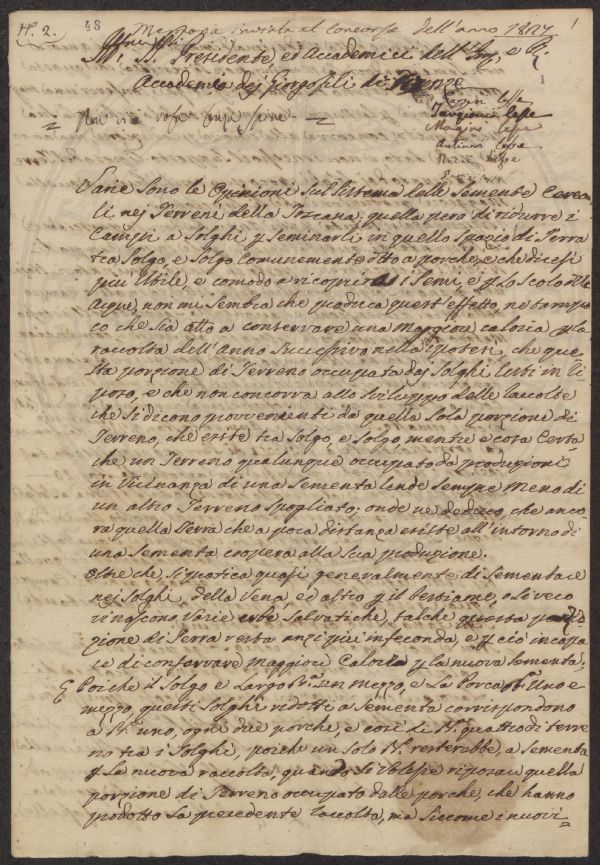 N.º 2. 48 Memoria inviata al Concorso dell'anno 1807 1
Ill. SS. Presidente, ed Accademici dell'Imp. e R.
Accademia dej Giorgofili di Firenze
1
= Non v'è rosa senza spine =
lesse
Targioni lesse
lesse
lesse
lesse
Varie sono le Opinioni sul sistema delle Semente Cerea-
li nej Terreni della Toscana; quella però di ridurre i
Campi a Solghi, y seminarli in quello spazio di Terra
tra Solgo, e Solgo comunemente detto a porche, e che dicesi
più Utile, e comodo a ricoprire i Semi, e y lo scolo delle
Acque, non mi sembra che produca quest'effetto, ne tampo-
co che sia atto a conservare una maggiore caloria y la
raccolta dell'Anno Successivo nella Ipotesi, che que-
sta porzione di Terreno occupata dej Solghi resti in Ri-
poso, e che non concorra allo sviluppo delle raccolte
che si dicono provvenienti da quella sola porzione di
Terreno, che esiste tra Solgo, e Solgo, mentre è cosa Certa
che un Terreno qualunque occupato da produzioni
in Vicinanza di una Sementa rende sempre meno di
un altro Terreno spogliato; onde ne deduco, che anco-
ra quella Terra che a poca distanza esiste all'intorno di
una Sementa, coopera alla sua produzione.
Oltre che, si pratica quasi generalmente di sementare
nej Solghi, della Vena, ed altro y il bestiame, o si veco
rinascono Varie erbe salvatiche, talche questa por-
zione di Terra resta anzi più infeconda, e y ciò incapa-
ce di conservare maggiore Caloria y la nuova Sementa;
E Poiche il Solgo è largo Bª. un mezzo, e la Porca Bª. Uno e
mezzo, questi Solghi ridotti a Sementa corrispondono
a Bª. uno, ogni due porche, e così di Bª. quattro di terre-
no tra i Solghi, porche un solo Bª. resterebbe, a Sementa
y la nuova raccolta, quando si Volesse riposare quella
porzione di Terreno occupato dalle porche, che hanno
prodotto la precedente raccolta, ma siccome i nuovi=